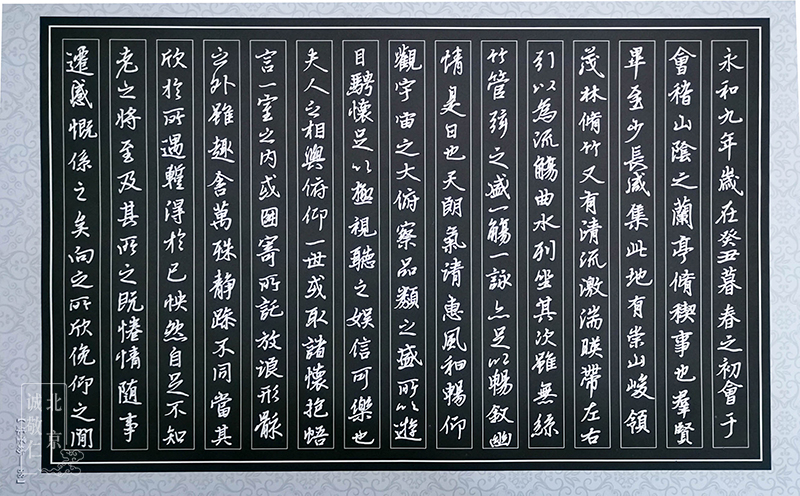 永和九年歲在癸丑暮春之初會于
會稽山陰之蘭亭脩稧事也羣賢
畢至少長咸集此地有崇山峻領
茂林脩竹又有清流激湍暎帶左右
引以為流觴曲水列坐其次雖無絲
竹管弦之盛一觴一詠亦足以暢敘幽
情是日也天朗氣清惠風和暢仰
觀宇宙之大俯察品類之盛所以遊
目騁懷足以極視聽之娛信可樂也
夫人之相與俯仰一世或取諸懷抱悟
言一室之內或因寄所託放浪形骸
之外雖趣舍萬殊靜躁不同當其
欣於所遇蹔得於己怏然自足不知
老之將至及其所之既惓情隨事
遷感慨係之矣向之所欣俛仰之閒
北京
诚敬仁